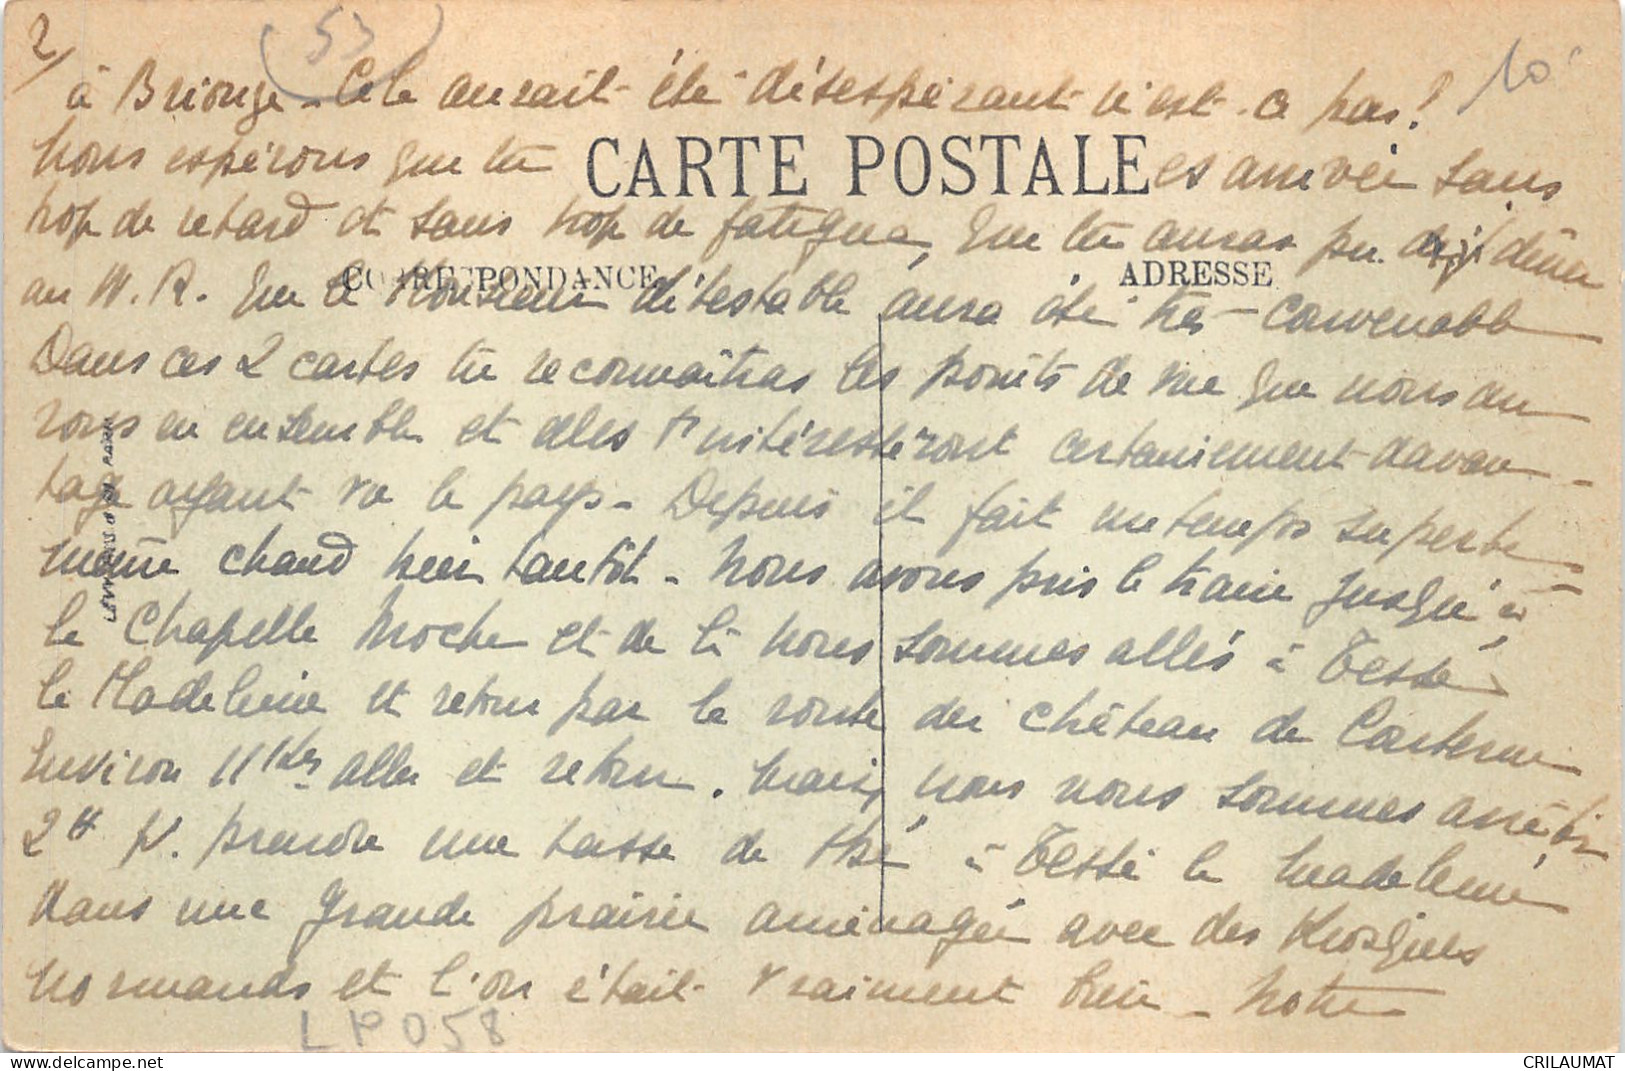 2/
(53)
10
à Briouze - Cela aurait été désespérant n'est-ce pas!
Nous espérons que tu es arrivée sans
CARTE POSTALE
trop de retard et sans trop de fatigue, que tu auras pu dîner
CORRESPONDANCE
ADRESSE
au W.R. que le Monsieur détestable aura été très convenable
Dans ces 2 cartes tu reconnaîtras les points de vue que nous au
rons vu ensemble et elles t'intéresseront certainement davan-
tage ayant vu le pays - Depuis il fait un temps superbe
même chaud hier tantôt - Nous avons pris le train jusqu'à
la Chapelle Moche et de là nous sommes allés à Tessé
la Madeleine et retour par la route du château de Couterne
Environ 11 kes aller et retour. Mais, nous nous sommes arrêtés,
2 h p. prendre une tasse de thé à Tessé la Madeleine
dans une grande prairie aménagée avec des Kiosques
Normands et l'on était vraiment bien - Notre
LP058
CRILAUMAT